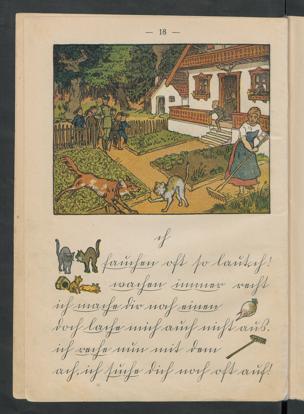 — 18 —
ch
fauchen oft so laut. ch!
wachen immer recht
ich mache dir nah einen
doch lache mich auch nicht aus.
ich reche nun mit dem
ach. ich suche dich noch oft auch!